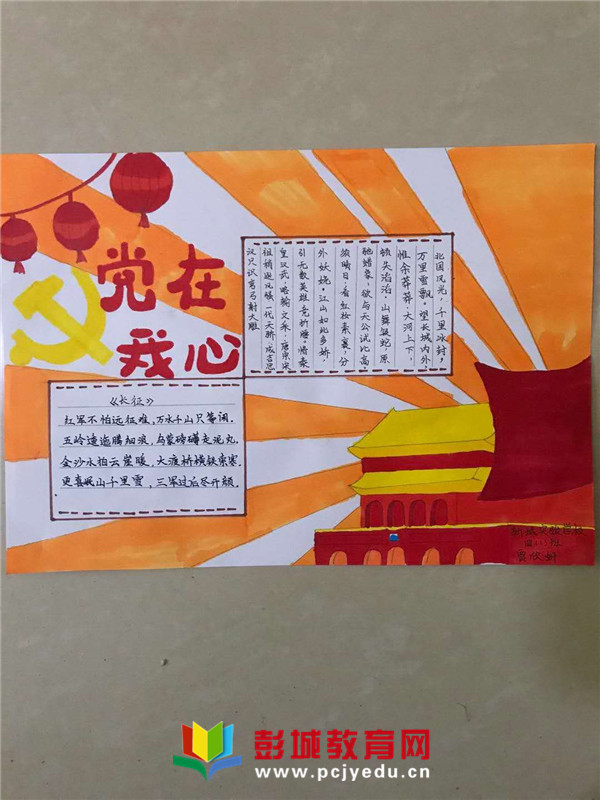 党在
我心
北国风光,千里冰封,
万里雪飘。望长城内外
惟余莽莽,大河上下,
顿失滔滔。山舞银蛇,原
驰蜡象,欲与天公试比高。
须晴日,看红妆素裹,分
外妖娆。江山如此多娇,
引无数英雄竞折腰。惜秦
皇汉武,略输文采,唐宗宋
祖稍逊风骚。一代天骄,成吉思
汉只识弯弓射大雕
《长征》
红军不怕远征难,万水千山只等闲.
五岭逶迤腾细浪,乌蒙磅礴走泥丸.
金沙水拍云崖暖,大渡桥横铁索寒.
更喜岷山千里雪,三军过后尽开颜.
班
彭城教育网
www.pcjyedu.cn